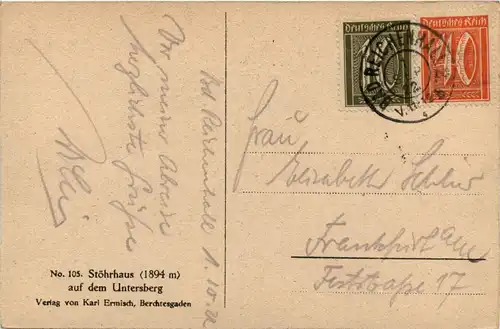 Bad Reichenhall 1.10.22
Vor meiner Abreise
herzlichste Grüße
No. 105. Stöhrhaus (1894 m)
auf dem Untersberg
Verlag von Karl Ermisch, Berchtesgaden
Deutsches Reich
10
Deutsches Reich
10
BAD REICHENHALL
Frau
Elisabeth
Frankfurt a/M
Feststraße 17